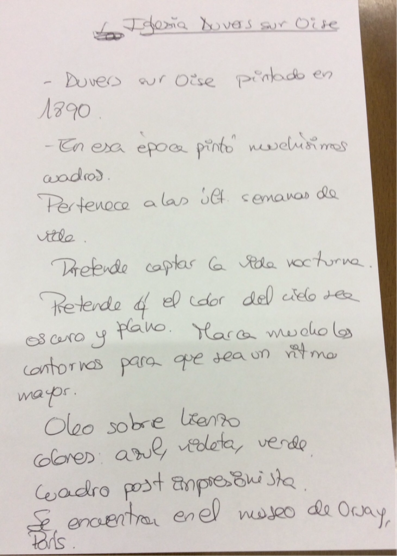 Iglesia Duvers sur Oise
- Duvers sur Oise pintado en
1890.
- En esa época pintó muchísimos
cuadros.
Pertenece a las últ. semanas de
vida.
Pretende captar la vida nocturna.
Pretende q el color del cielo sea
oscuro y plano. Marca mucho los
contornos para que sea un ritmo
mayor.
Oleo sobre lienzo
colores: azul, violeta, verde.
cuadro post impresionista.
Se encuentra en el museo de Orsay,
París.